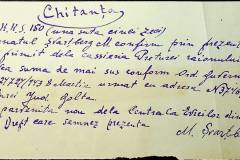 Chitanță
R.M.S. 150 (una sută cinci zeci)
natul Șfartberg M. confirm prin prezenta
primit dela Cassieria Preturei raionului
ea suma de mai sus conform Ord. guvern
27227/943 8 Martie urmat cu adresa No 3746
urei Jud. Golta.
parținător nou dela Centrala Evreilor din
Drept care semnez prezenta
M. Șfartb